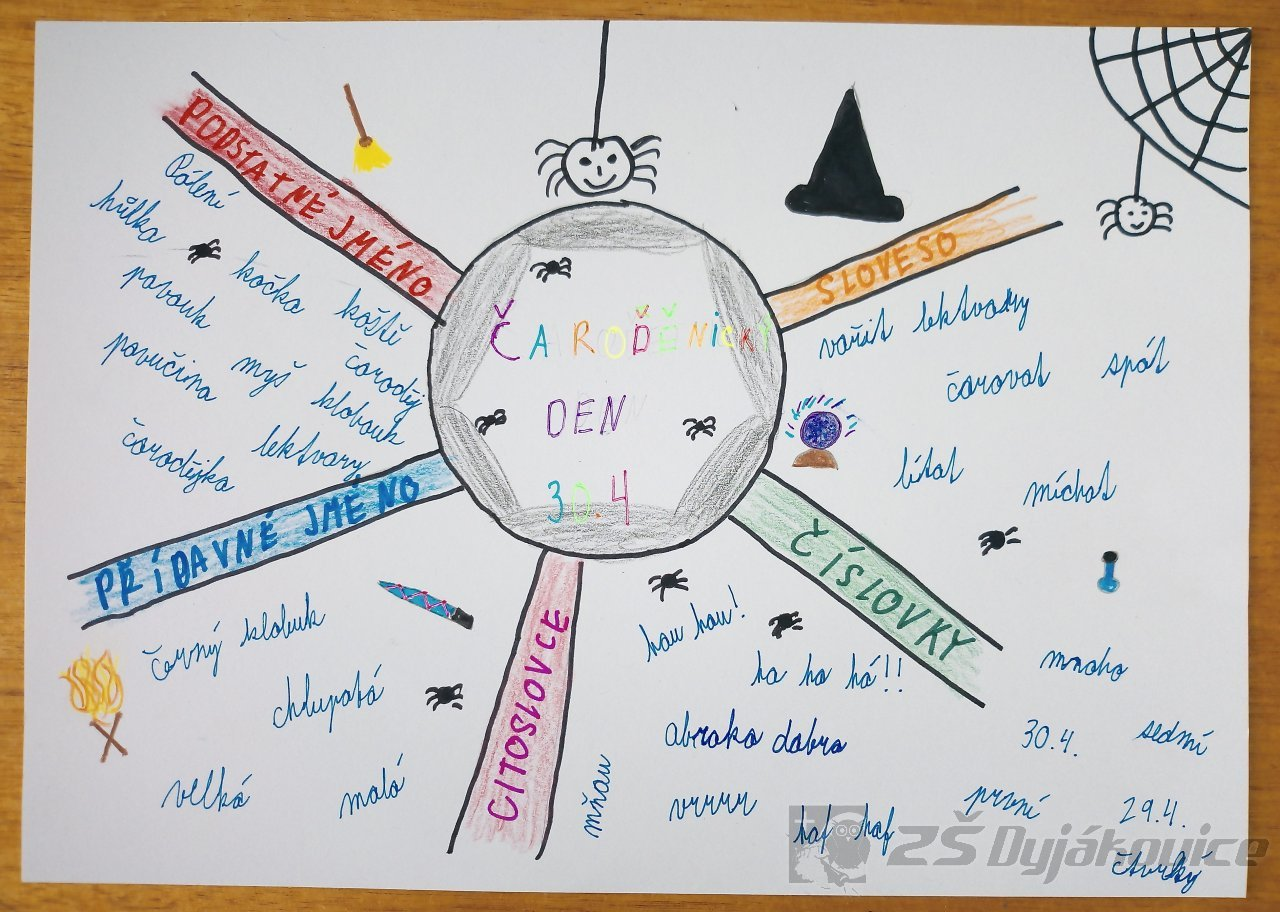 ČARODĚNICKÝ
DEN
30.4
PODSTATNÉ JMÉNO
Pálení
hůlka
kočka
koště
pavouk
čaroděj
pavučina
myš
klobouk
čarodějka
lektvary
SLOVESO
vařit lektvary
čarovat
spát
lítat
míchat
PŘÍDAVNÉ JMÉNO
černý klobuk
chlupatá
velká
malá
CITOSLOVCE
hau hau!
ha ha há!!
abraka dabra
mňau
vrrrr
haf haf
ČÍSLOVKY
mnoho
30.4.
sedmí
první
29.4.
čtvrtký
ZŠ Dyjákovice